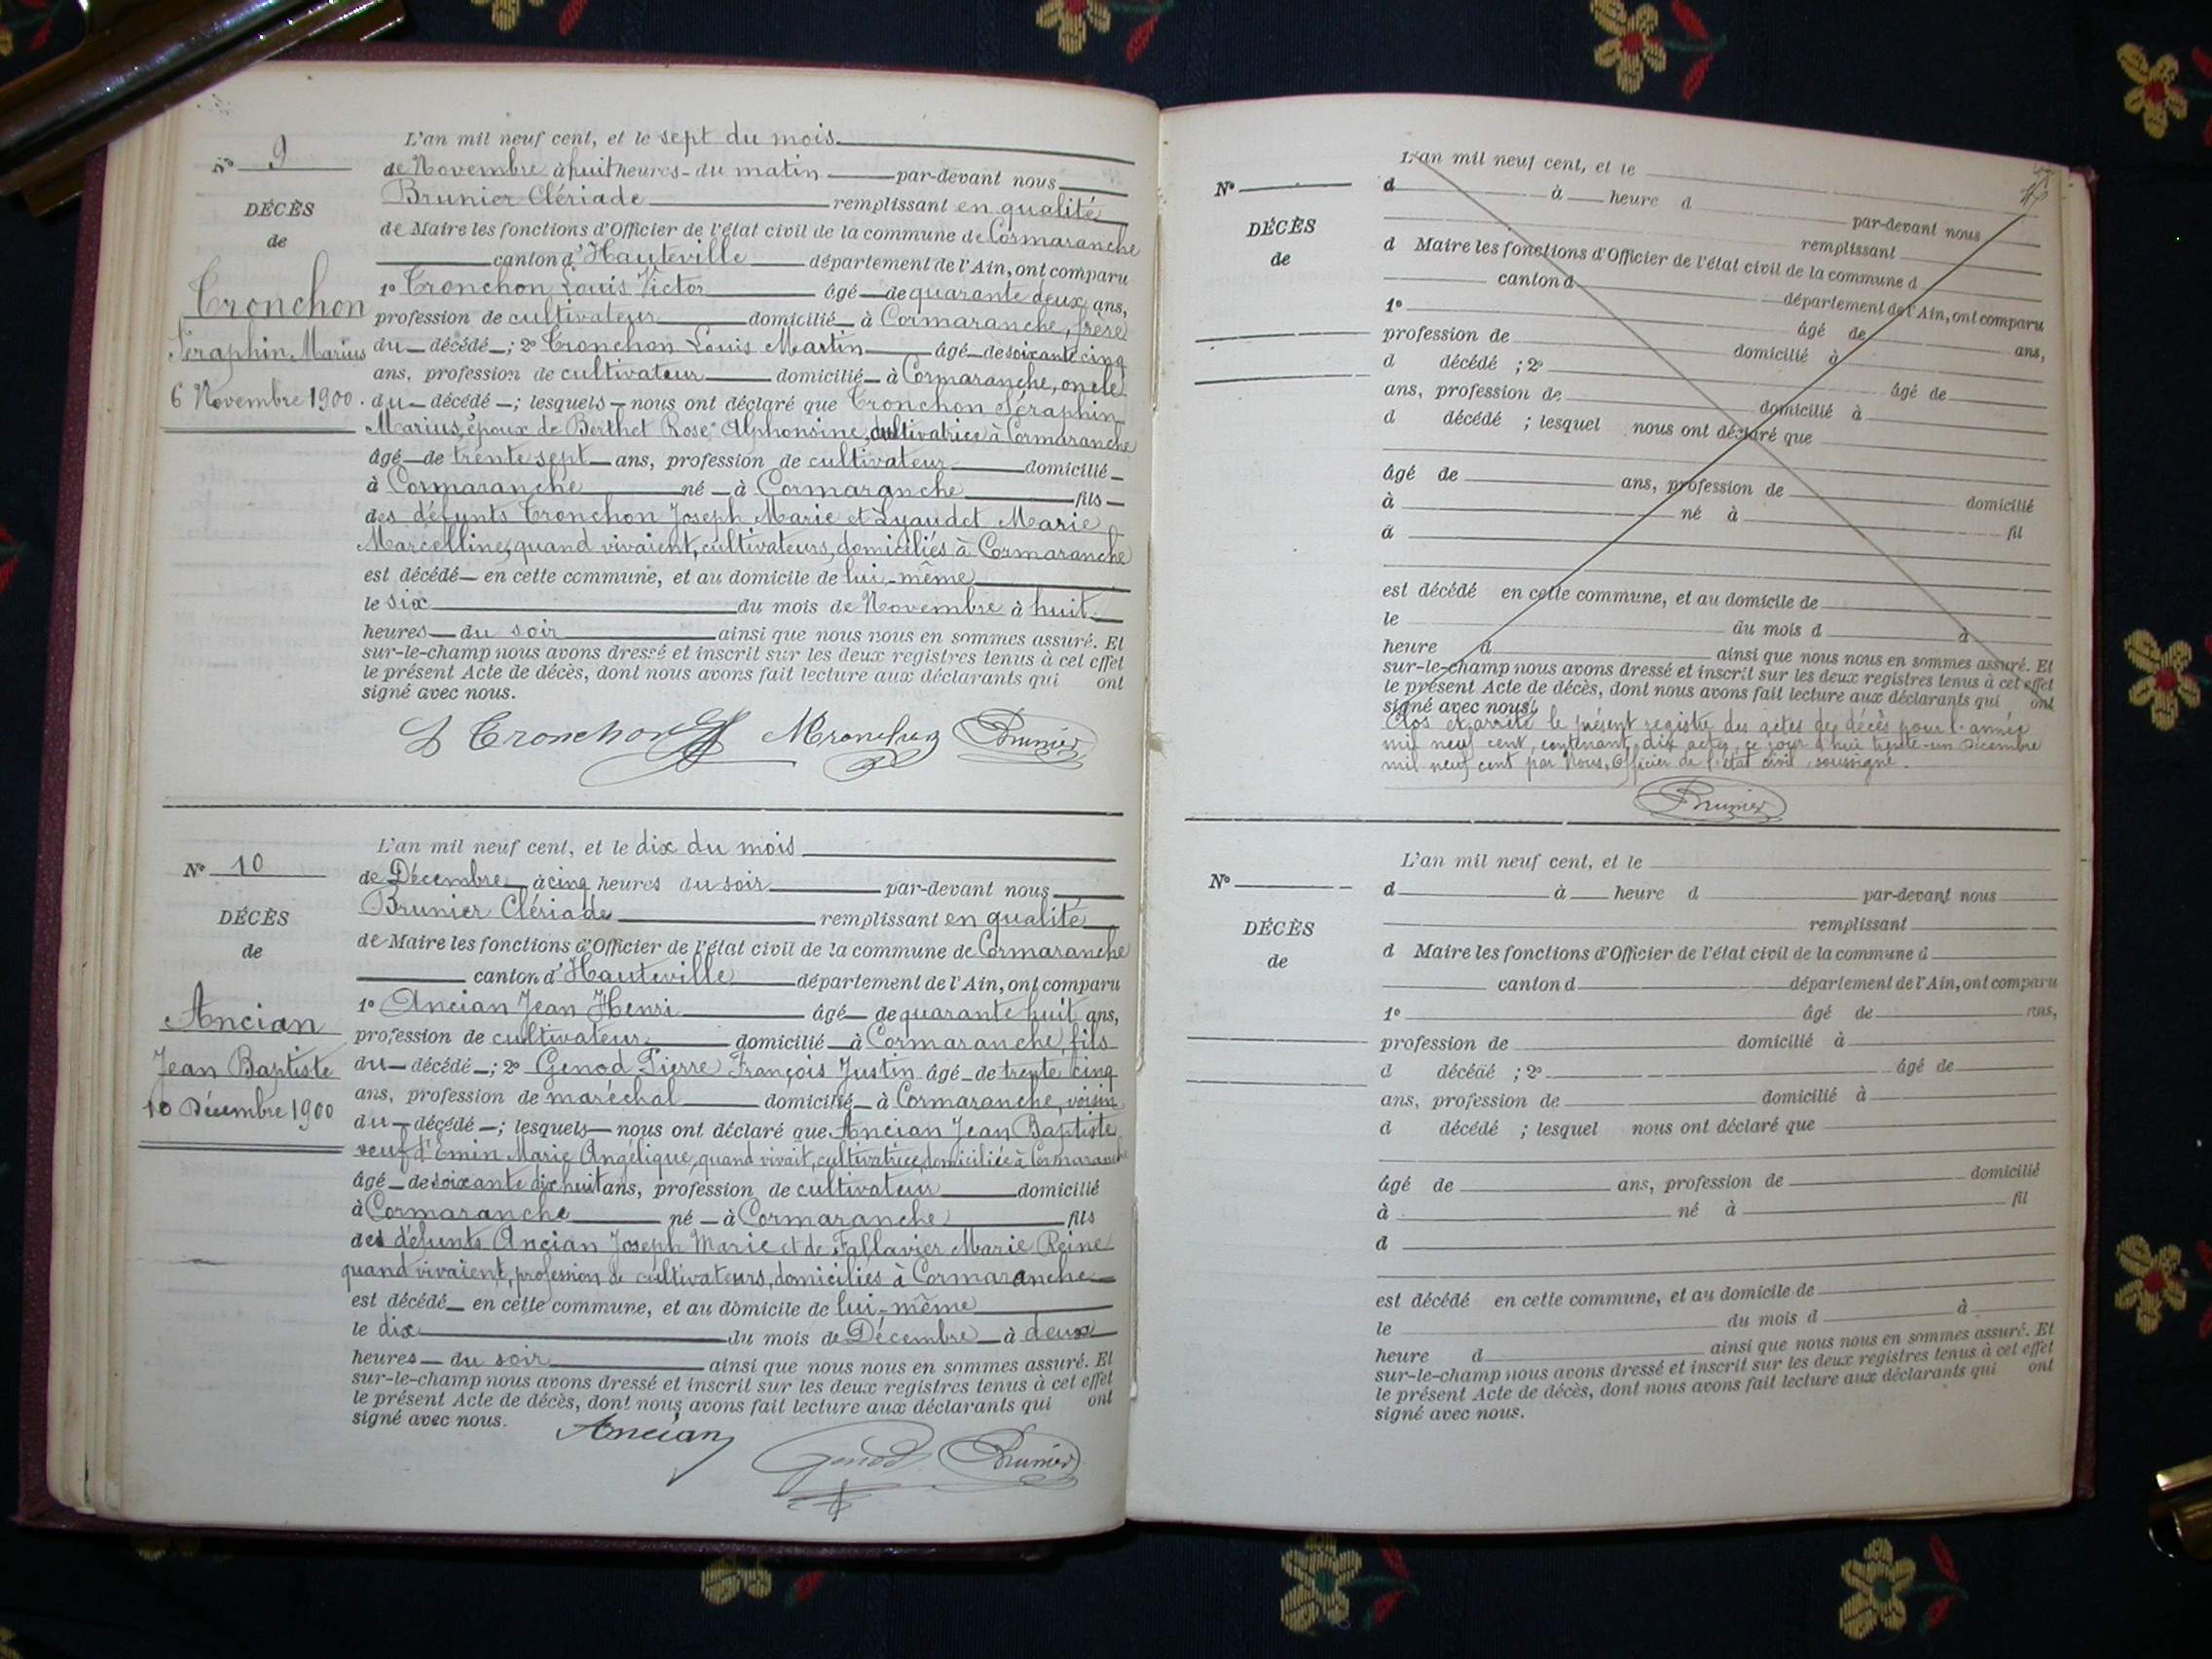 L'an mil neuf cent, et le sept du mois
N° 9
de Novembre à huit heures du matin par-devant nous
Brunier Clériade remplissant en qualité
DÉCÈS
de Maire les fonctions d'Officier de l'état civil de la commune de Cormaranche
de
canton d'Hauteville département de l'Ain, ont comparu
Tronchon
1° Tronchon Louis Victor âgé de quarante deux ans,
profession de cultivateur domicilié à Cormaranche, frère
Séraphin Marius
du décédé ; 2° Tronchon Louis Martin âgé de soixante cinq
ans, profession de cultivateur domicilié à Cormaranche, oncle
6 Novembre 1900.
du décédé ; lesquels nous ont déclaré que Tronchon Séraphin
Marius, époux de Berthet Rose Alphonsine, cultivatrice à Cormaranche
âgé de trente sept ans, profession de cultivateur domicilié
à Cormaranche né à Cormaranche fils
des défunts Tronchon Joseph Marie et Lyaudet Marie
Marcelline, quand vivaient, cultivateurs, domiciliés à Cormaranche
est décédé en cette commune, et au domicile de lui-même
le six du mois de Novembre à huit
heures du soir ainsi que nous nous en sommes assuré. Et
sur-le-champ nous avons dressé et inscrit sur les deux registres tenus à cet effet
le présent Acte de décès, dont nous avons fait lecture aux déclarants qui ont
signé avec nous.
Tronchon Brunier
L'an mil neuf cent, et le dix du mois
N° 10
de Décembre à cinq heures du soir par-devant nous
Brunier Clériade remplissant en qualité
DÉCÈS
de Maire les fonctions d'Officier de l'état civil de la commune de Cormaranche
de
canton d'Hauteville département de l'Ain, ont comparu
Ancian
1° Ancian Jean Henri âgé de quarante huit ans,
profession de cultivateur domicilié à Cormaranche, fils
Jean Baptiste
du décédé ; 2° Genod Pierre François Justin âgé de trente cinq
ans, profession de maréchal domicilié à Cormaranche, voisin
10 Décembre 1900
du décédé ; lesquels nous ont déclaré que Ancian Jean Baptiste
veuf d'Emin Marie Angélique, quand vivait, cultivatrice, domiciliée à Cormaranche
âgé de soixante dix huit ans, profession de cultivateur domicilié
à Cormaranche né à Cormaranche fils
des défunts Ancian Joseph Marie et de Fallavier Marie Reine
quand vivaient, profession de cultivateurs, domiciliés à Cormaranche
est décédé en cette commune, et au domicile de lui-même
le dix du mois de Décembre à deux
heures du soir ainsi que nous nous en sommes assuré. Et
sur-le-champ nous avons dressé et inscrit sur les deux registres tenus à cet effet
le présent Acte de décès, dont nous avons fait lecture aux déclarants qui ont
signé avec nous.
Ancian Genod Brunier
L'an mil neuf cent, et le
N°
d à heure d par-devant nous
remplissant
DÉCÈS
d Maire les fonctions d'Officier de l'état civil de la commune d
de
canton d département de l'Ain, ont comparu
1° âgé de ans,
profession de domicilié à
d décédé ; 2° âgé de
ans, profession de domicilié à
d décédé ; lesquel nous ont déclaré que
âgé de ans, profession de domicilié
à né à fil
d
est décédé en cette commune, et au domicile de
le du mois d à
heure d ainsi que nous nous en sommes assuré. Et
sur-le-champ nous avons dressé et inscrit sur les deux registres tenus à cet effet
le présent Acte de décès, dont nous avons fait lecture aux déclarants qui ont
signé avec nous.
Clos et arrêté le présent registre des actes de décès pour l'année
mil neuf cent, contenant dix actes, ce jour d'hui trente-un Décembre
mil neuf cent par Nous, Officier de l'état civil, soussigné.
Brunier
L'an mil neuf cent, et le
N°
d à heure d par-devant nous
remplissant
DÉCÈS
d Maire les fonctions d'Officier de l'état civil de la commune d
de
canton d département de l'Ain, ont comparu
1° âgé de ans,
profession de domicilié à
d décédé ; 2° âgé de
ans, profession de domicilié à
d décédé ; lesquel nous ont déclaré que
âgé de ans, profession de domicilié
à né à fil
d
est décédé en cette commune, et au domicile de
le du mois d à
heure d ainsi que nous nous en sommes assuré. Et
sur-le-champ nous avons dressé et inscrit sur les deux registres tenus à cet effet
le présent Acte de décès, dont nous avons fait lecture aux déclarants qui ont
signé avec nous.